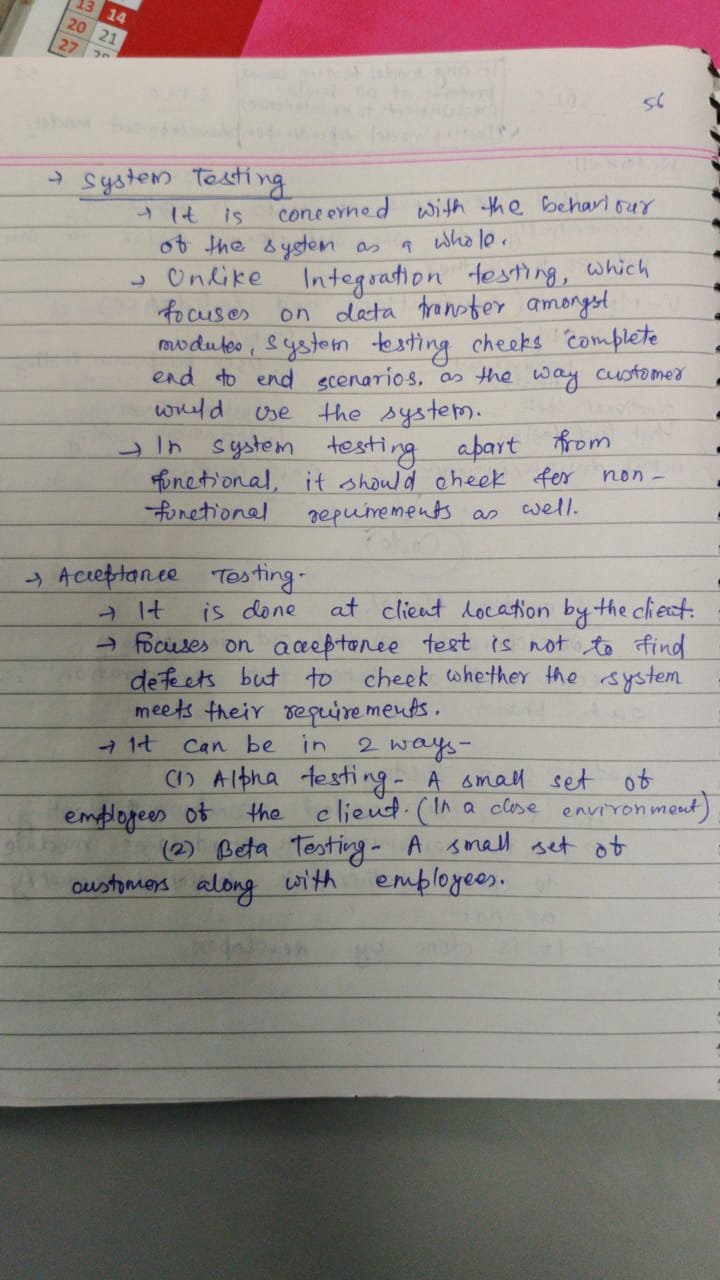 13 14
20 21
27
56
→ System Testing
→ It is concerned with the behaviour
of the system as a whole.
→ Unlike Integration testing, which
focuses on data transfer amongst
modules, system testing checks complete
end to end scenarios. as the way customer
would use the system.
→ In system testing apart from
functional, it should check for non-
functional requirements as well.
→ Acceptance Testing-
→ It is done at client location by the client.
→ Focuses on acceptance test is not to find
defects but to check whether the system
meets their requirements.
→ It can be in 2 ways-
(1) Alpha testing- A small set of
employees of the client. (In a close environment)
(2) Beta Testing- A small set of
customers along with employees.